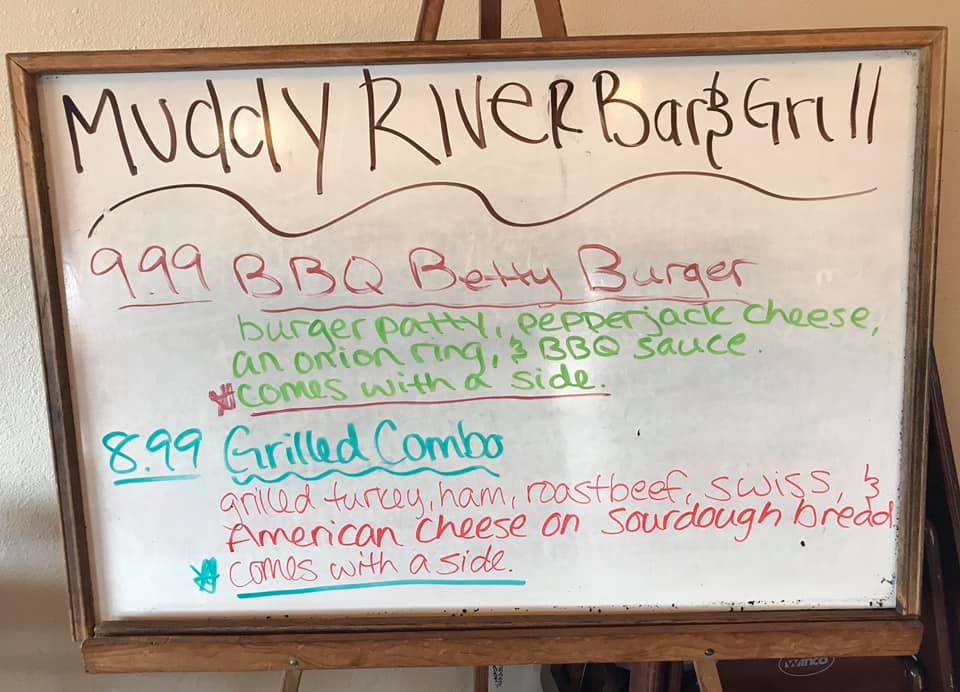 Muddy River Bar & Grill
9.99 BBQ Betty Burger
burger patty, pepperjack cheese,
an onion ring, & BBQ sauce.
*comes with a side.
8.99 Grilled Combo
grilled turkey, ham, roastbeef, swiss, &
American cheese on sourdough bread.
*comes with a side.
winco